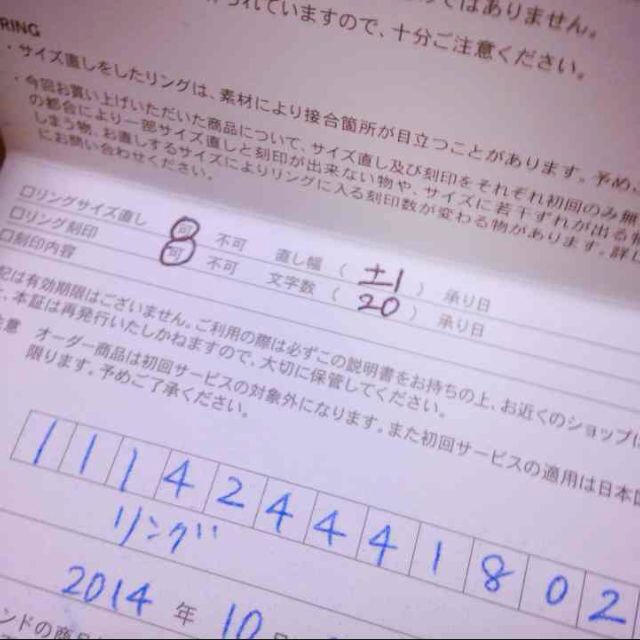 ではありません。
られていますので、十分ご注意ください。
RING
・サイズ直しをしたリングは、素材により接合箇所が目立つことがあります。予め、
・今回お買い上げいただいた商品について、サイズ直し及び刻印をそれぞれ初回のみ無
の都合により一部サイズ直しと刻印が出来ない物や、サイズに若干ずれが出る
しまう物、お直しするサイズによりリングに入る刻印数が変わる物があります。詳し
にお問い合わせください。
□リングサイズ直し 可 不可 直し幅 ( ±1 ) 承り日
□リング刻印 可 不可 文字数 ( 20 ) 承り日
□刻印内容
記は有効期限はございません。ご利用の際は必ずこの説明書をお持ちの上、お近くのショップに
、本証は再発行いたしかねますので、大切に保管してください。
注意 オーダー商品は初回サービスの対象外になります。また初回サービスの適用は日本国
限ります。予めご了承ください。
1 1 1 4 2 4 4 4 1 8 0 2
リング
2014 年 10 月
ンドの商品